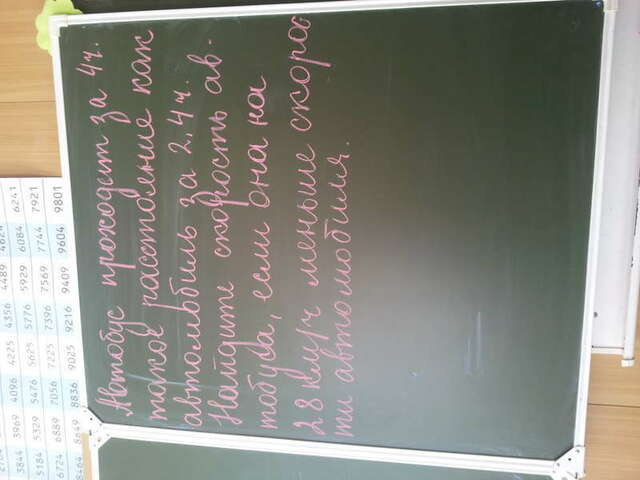 Автобус проходит за 4ч.
такое расстояние как
автомобиль за 2,4ч.
Найдите скорость ав-
тобуса, если она на
28 км/ч меньше скорос
ти автомобиля.
6241 7921 9801
6084 7744 9604
4489 5929 7569 9409
4356 5776 7396 9216
4225 5625 7225 9025
4096 5476 7056 8836
3969 5329 6889 8649
3844 5184 6724 8464